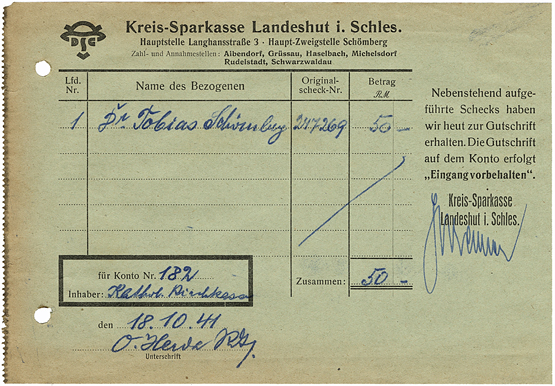 Kreis-Sparkasse Landeshut i. Schles.
Hauptstelle Langhansstraße 3 · Haupt-Zweigstelle Schömberg
Zahl- und Annahmestellen: Albendorf, Grüssau, Haselbach, Michelsdorf
Rudelstadt, Schwarzwaldau
Lfd. Nr. Name des Bezogenen Original-scheck-Nr. Betrag RM.
1 Dr Tobias Schömberg 247269 50 –
Zusammen: 50 –
für Konto Nr. 182
Inhaber: Kathol. Kirchkasse
den 18.10.41
O. Herde
Unterschrift
Nebenstehend aufge-
führte Schecks haben
wir heut zur Gutschrift
erhalten. Die Gutschrift
auf dem Konto erfolgt
„Eingang vorbehalten“.
Kreis-Sparkasse
Landeshut i. Schles.